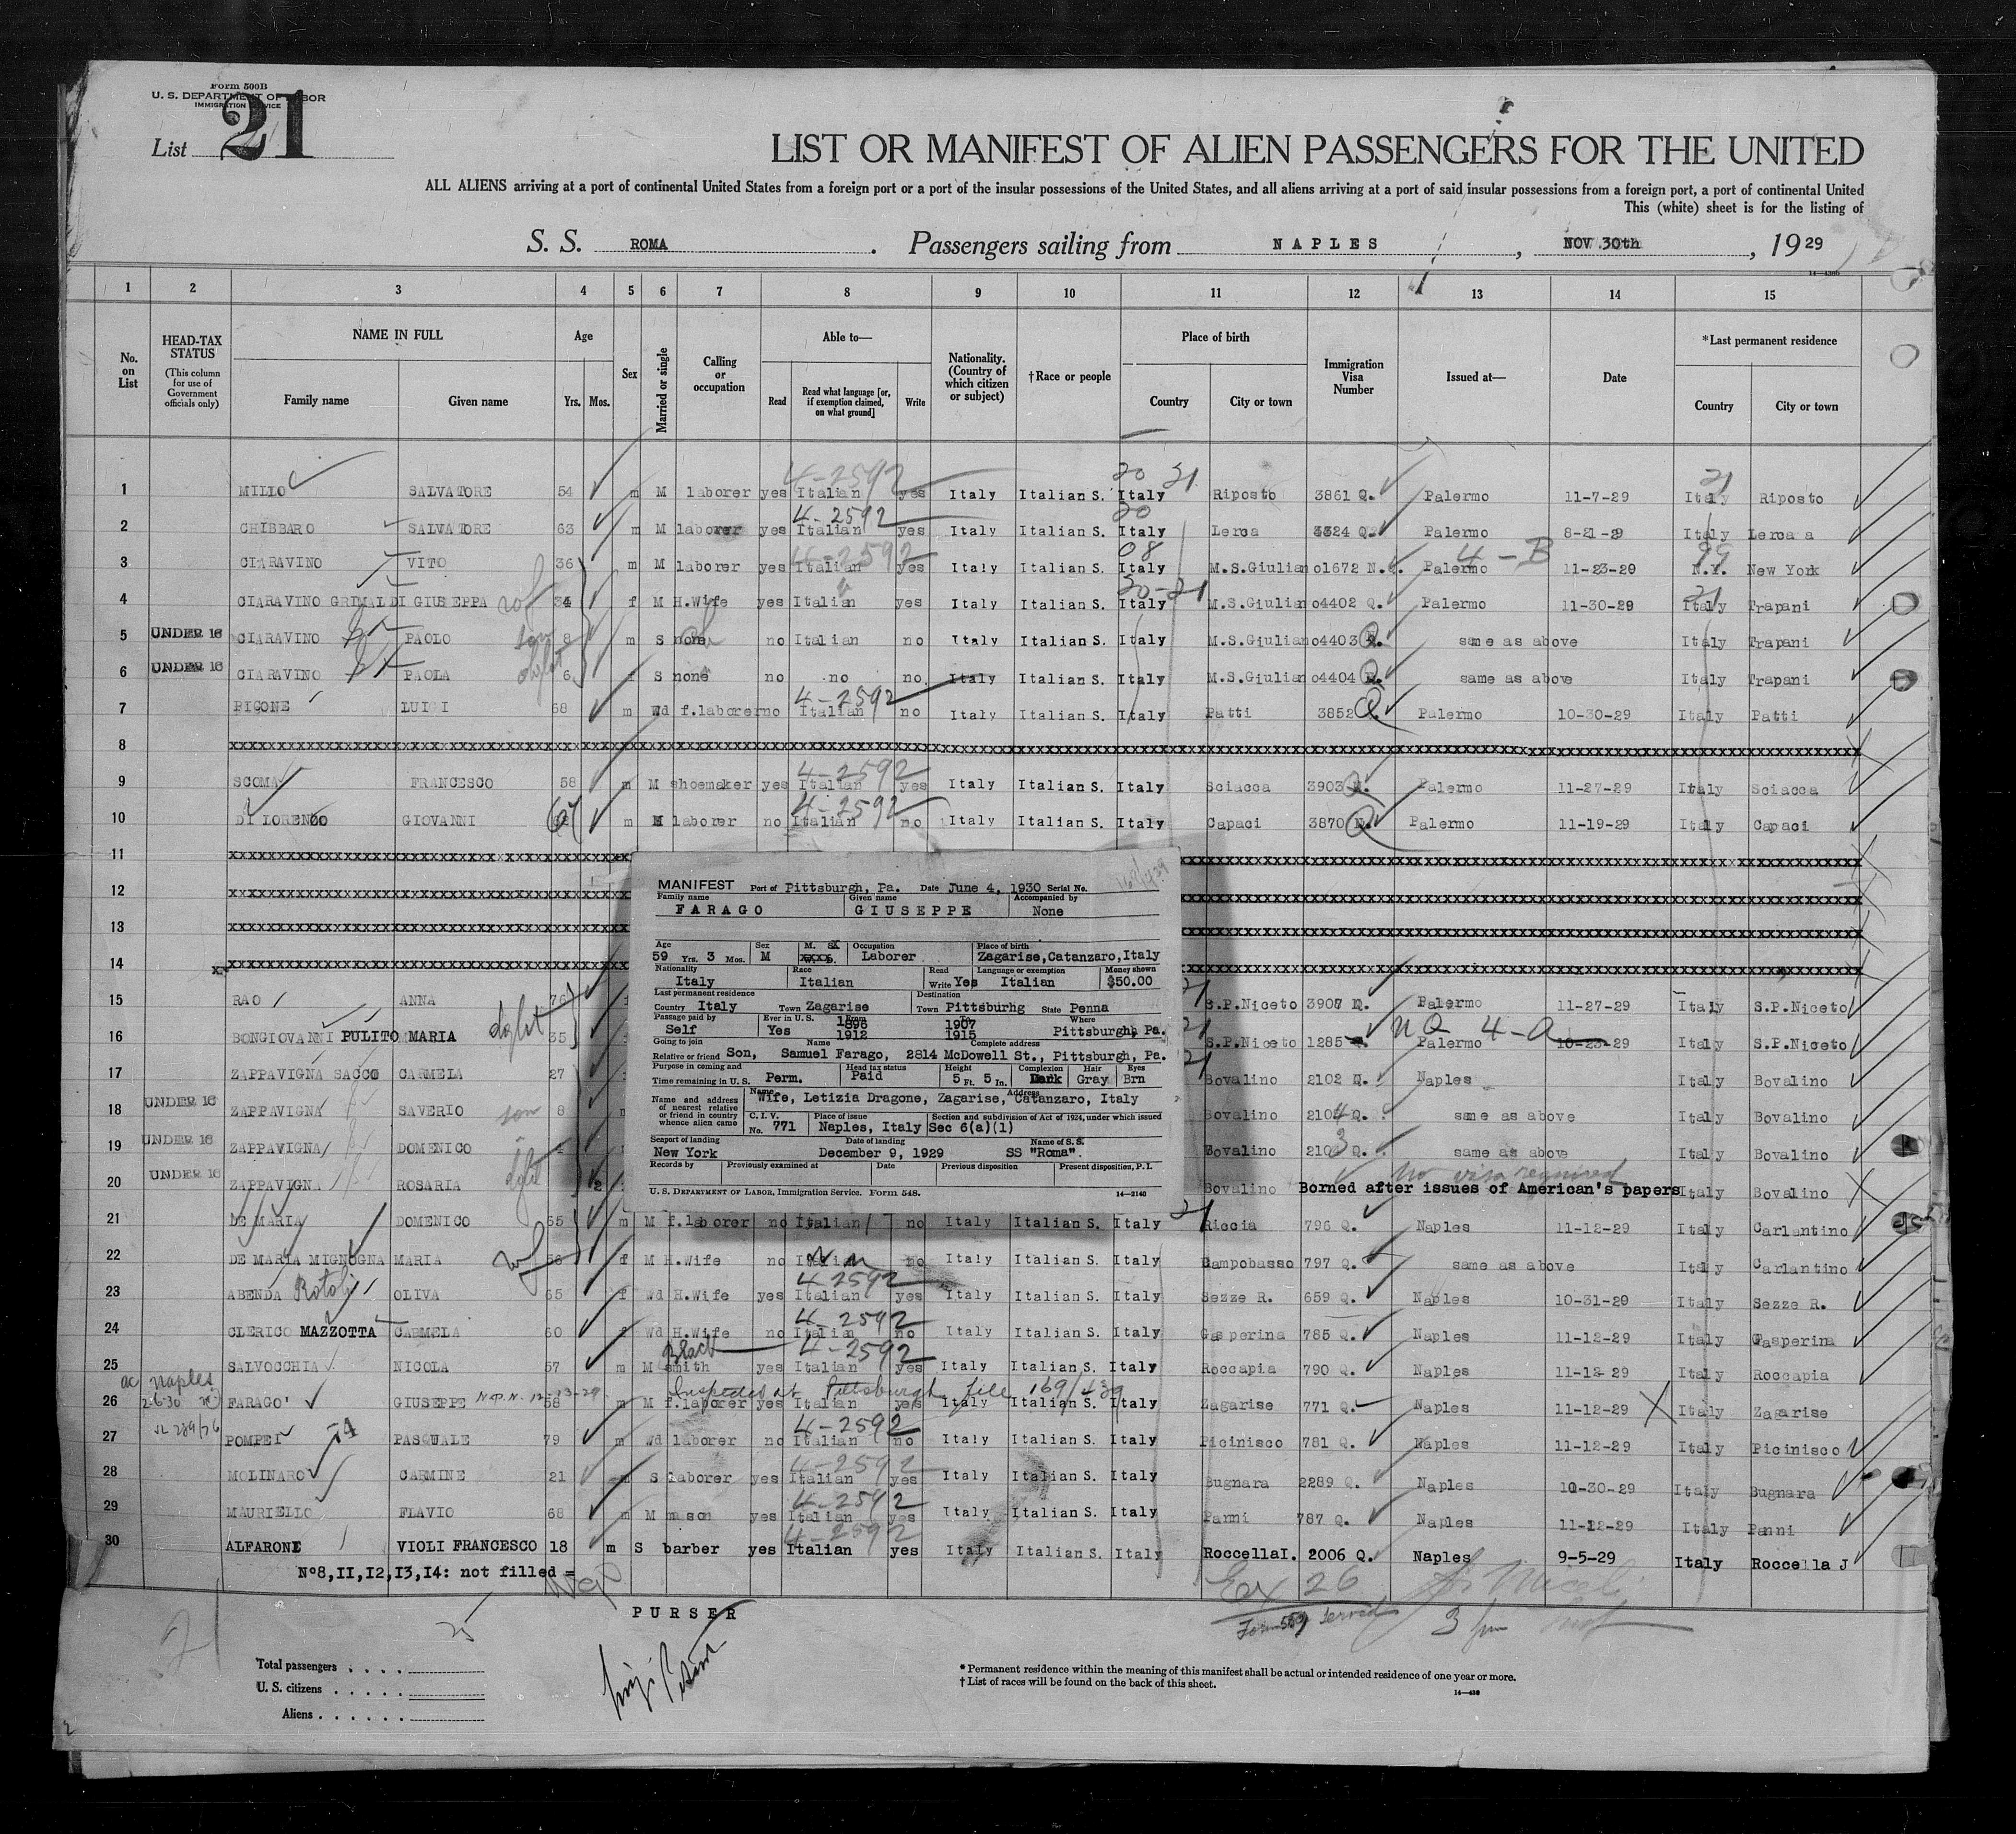 Form 500B
U. S. DEPARTMENT OF LABOR
IMMIGRATION SERVICE
List 21
LIST OR MANIFEST OF ALIEN PASSENGERS FOR THE UNITED
ALL ALIENS arriving at a port of continental United States from a foreign port or a port of the insular possessions of the United States, and all aliens arriving at a port of said insular possessions from a foreign port, a port of continental United
This (white) sheet is for the listing of
S. S. ROMA . Passengers sailing from NAPLES , NOV 30th , 1929
1 2 3 4 5 6 7 8 9 10 11 12 13 14 15
No. on List
HEAD-TAX STATUS (This column for use of Government officials only)
NAME IN FULL Family name Given name
Age Yrs. Mos.
Sex
Married or single
Calling or occupation
Able to— Read Read what language [or, if exemption claimed, on what ground] Write
Nationality. (Country of which citizen or subject)
†Race or people
Place of birth Country City or town
Immigration Visa Number
Issued at—
Date
*Last permanent residence Country City or town
4-2592 20 21 21
1 MILIO SALVATORE 54 m M laborer yes Italian yes Italy Italian S. Italy Riposto 3861 Q. Palermo 11-7-29 Italy Riposto
4-2592 20
2 CHIBBARO SALVATORE 63 m M laborer yes Italian yes Italy Italian S. Italy Lerca 3324 Q. Palermo 8-21-29 Italy Lerca a
4-2592 08 4-B 99
3 CIARAVINO VITO 36 m M laborer yes Italian yes Italy Italian S. Italy M.S.Giuliano 1672 N.Q. Palermo 11-23-29 N.Y. New York
20-21 21
4 CIARAVINO GRIMALDI GIUSEPPA 34 f M H.Wife yes Italian yes Italy Italian S. Italy M.S.Giuliano 4402 Q. Palermo 11-30-29 Italy Trapani
5 UNDER 16 CIARAVINO PAOLO son 8 m S none no Italian no Italy Italian S. Italy M.S.Giuliano 4403 Q. same as above Italy Trapani
6 UNDER 16 CIARAVINO PAOLA dght 6 f S none no no no Italy Italian S. Italy M.S.Giuliano 4404 Q. same as above Italy Trapani
4-2592
7 PICONE LUIGI 68 m Wd f.laborer no Italian no Italy Italian S. Italy Patti 3852 Q. Palermo 10-30-29 Italy Patti
8
4-2592
9 SCOMA FRANCESCO 58 m M shoemaker yes Italian yes Italy Italian S. Italy Sciacca 3903 Palermo 11-27-29 Italy Sciacca
4-2592
10 DI LORENZO GIOVANNI 67 m M laborer no Italian no Italy Italian S. Italy Capaci 3870 Palermo 11-19-29 Italy Capaci
11
12
13
14
MANIFEST Port of Pittsburgh, Pa. Date June 4, 1930 Serial No. 169/439
Family name Given name Accompanied by
FARAGO GIUSEPPE None
Age Sex M. S. Occupation Place of birth
59 Yrs. 3 Mos. M Laborer Zagarise,Catanzaro,Italy
Nationality Race Read Language or exemption Money shown
Italy Italian Write Yes Italian $50.00
Last permanent residence Destination
Country Italy Town Zagarise Town Pittsburhg State Penna
Passage paid by Ever in U.S. From To Where
Self Yes 1896 1907
1912 1915 Pittsburgh, Pa.
Going to join Name Complete address
Relative or friend Son, Samuel Farago, 2814 McDowell St., Pittsburgh, Pa.
Purpose in coming and Head tax status Height Complexion Hair Eyes
Time remaining in U. S. Perm. Paid 5 Ft. 5 In. Dark Gray Brn
Name and address of nearest relative or friend in country whence alien came Name Address
Wife, Letizia Dragone, Zagarise, Catanzaro, Italy
C. I. V. Place of issue Section and subdivision of Act of 1924, under which issued
No. 771 Naples, Italy Sec 6(a)(1)
Seaport of landing Date of landing Name of S. S.
New York December 9, 1929 SS "Roma".
Records by Previously examined at Date Previous disposition Present disposition, P. I.
U. S. DEPARTMENT OF LABOR, Immigration Service. Form 548. 14—2140
15 RAO ANNA 76 S.P.Niceto 3907 Palermo 11-27-29 Italy S.P.Niceto
NQ 4-a
16 BONGIOVANNI PULITO MARIA dght 35 S.P.Niceto 1285 Palermo 10-23-29 Italy S.P.Niceto
17 ZAPPAVIGNA SACCO CARMELA 27 Bovalino 2102 Naples Italy Bovalino
18 UNDER 16 ZAPPAVIGNA SAVERIO son 8 Bovalino 2104 Q. same as above Italy Bovalino
19 UNDER 16 ZAPPAVIGNA DOMENICO Bovalino 2103 same as above Italy Bovalino
no visa required
20 UNDER 16 ZAPPAVIGNA ROSARIA dght 2 Bovalino Borned after issues of American's papers Italy Bovalino
21 DE MARIA DOMENICO 55 m M f.laborer no Italian no Italy Italian S. Italy Riccia 796 Q. Naples 11-12-29 Italy Carlantino
22 DE MARIA MIGNOGNA MARIA 56 f M H.Wife no Italian no Italy Italian S. Italy Campobasso 797 Q. same as above Italy Carlantino
4-2592
23 ABENDA Rotoli OLIVA 65 f Wd H.Wife yes Italian yes Italy Italian S. Italy Sezze R. 659 Q. Naples 10-31-29 Italy Sezze R.
4-2592
24 CLERICO MAZZOTTA CARMELA 60 f Wd H.Wife no Italian no Italy Italian S. Italy Gasperina 785 Q. Naples 11-12-29 Italy Gasperina
Black 4-2592
25 SALVOCCHIA NICOLA 57 m M smith yes Italian yes Italy Italian S. Italy Roccapia 790 Q. Naples 11-12-29 Italy Roccapia
Naples Inspected at Pittsburgh file 169/439
26 2-6-30 FARAGO' GIUSEPPE 12-13-29 58 M f.laborer yes Italian yes Italy Italian S. Italy Zagarise 771 Q. Naples 11-12-29 Italy Zagarise
4-2592
27 POMPEI PASQUALE 79 m Wd laborer no Italian no Italy Italian S. Italy Picinisco 781 Q. Naples 11-12-29 Italy Picinisco
4-2592
28 MOLINARO CARMINE 21 m S laborer yes Italian yes Italy Italian S. Italy Bugnara 2289 Q. Naples 10-30-29 Italy Bugnara
4-2592
29 MAURIELLO FLAVIO 68 m M mason yes Italian yes Italy Italian S. Italy Panni 787 Q. Naples 11-12-29 Italy Panni
4-2592
30 ALFARONE VIOLI FRANCESCO 18 m S barber yes Italian yes Italy Italian S. Italy RoccellaI. 2006 Q. Naples 9-5-29 Italy Roccella J
N°8,II,I2,I3,I4: not filled =
Ex 26
Form 559 served 3 pm
PURSER
25
21
Total passengers
U. S. citizens
Aliens
* Permanent residence within the meaning of this manifest shall be actual or intended residence of one year or more.
† List of races will be found on the back of this sheet.
14—430